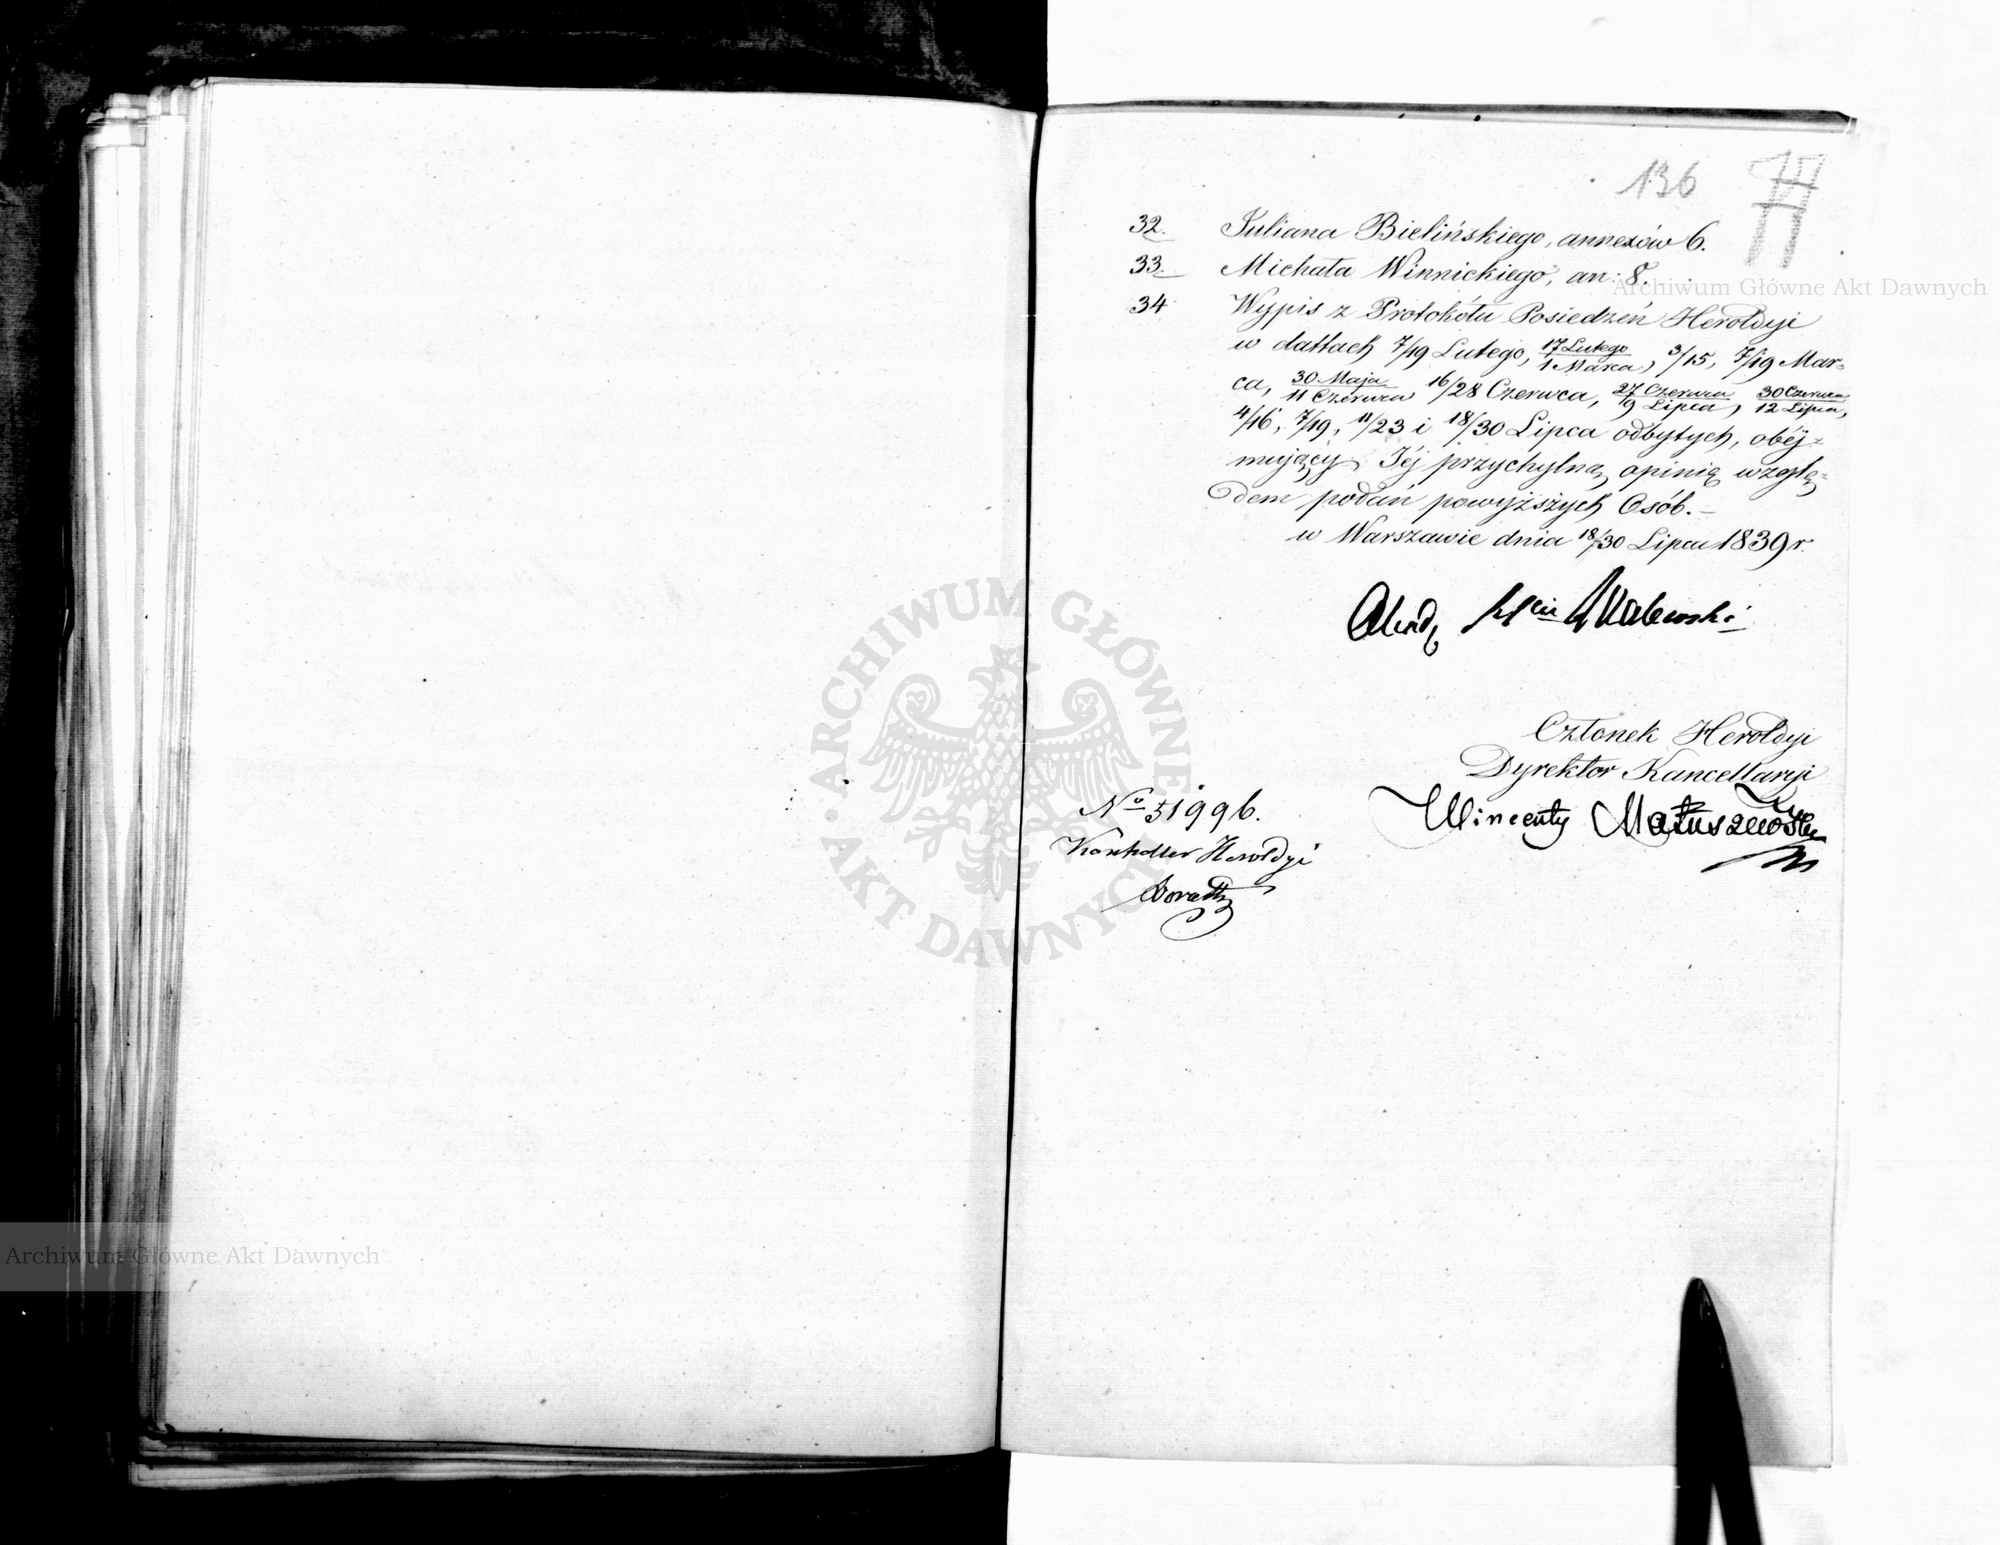 136 77
32. Juliana Bielińskiego, annexów 6.
33. Michała Winnickiego, an: 8.
34 Wypis z Protokółu Posiedzeń Heroldyi
w dattach 7/19 Lutego, 17 Lutego/1 Marca, 3/15, 7/19 Mar=
ca, 30 Maja/11 Czerwca 16/28 Czerwca, 27 Czerwca/9 Lipca, 30 Czerwca/12 Lipca,
4/16, 7/19, 11/23 i 18/30 Lipca odbytych, obéj=
mujący Jéj przychylną opinię wzglę=
dem podań powyższych Osób.–
w Warszawie dnia 18/30 Lipca 1839 r.
Członek Heroldyi
Dyrektor Kancellaryi
Wincenty Matuszewski
No 51996.
Kontroller Heroldyi
Archiwum Główne Akt Dawnych
Archiwum Główne Akt Dawnych
ARCHIWUM GŁÓWNE AKT DAWNYCH